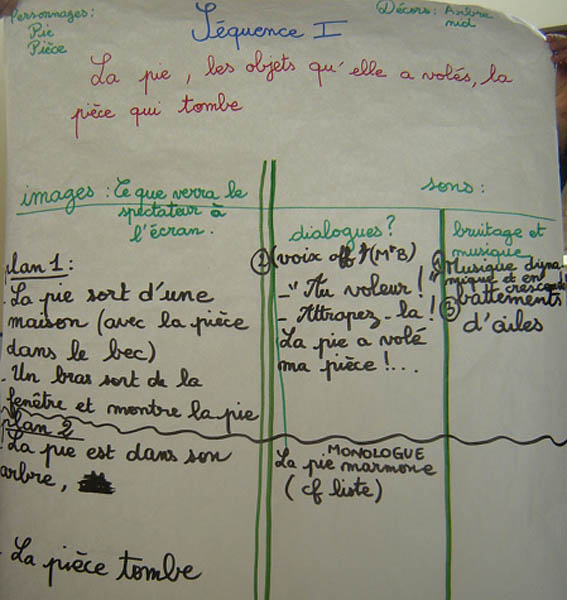 Personnages:
Pie
Pièce
Séquence I
Décors: Arbre
nid
La pie, les objets qu'elle a volés, la
pièce qui tombe
images: Ce que verra le
spectateur à
l'écran.
sons:
dialogues?
bruitage et
musique
plan 1:
- La pie sort d'une
maison (avec la pièce
dans le bec)
- Un bras sort de la
fenêtre et montre la pie
② (voix off
- "Au voleur!"
- Attrapez-la!
La pie a volé
ma pièce!...
① Musique dyna-
mique et en
crescendo
③ battements
d'ailes
plan 2
- La pie est dans son
arbre,
- La pièce tombe
MONOLOGUE
La pie marmone
(cf liste)